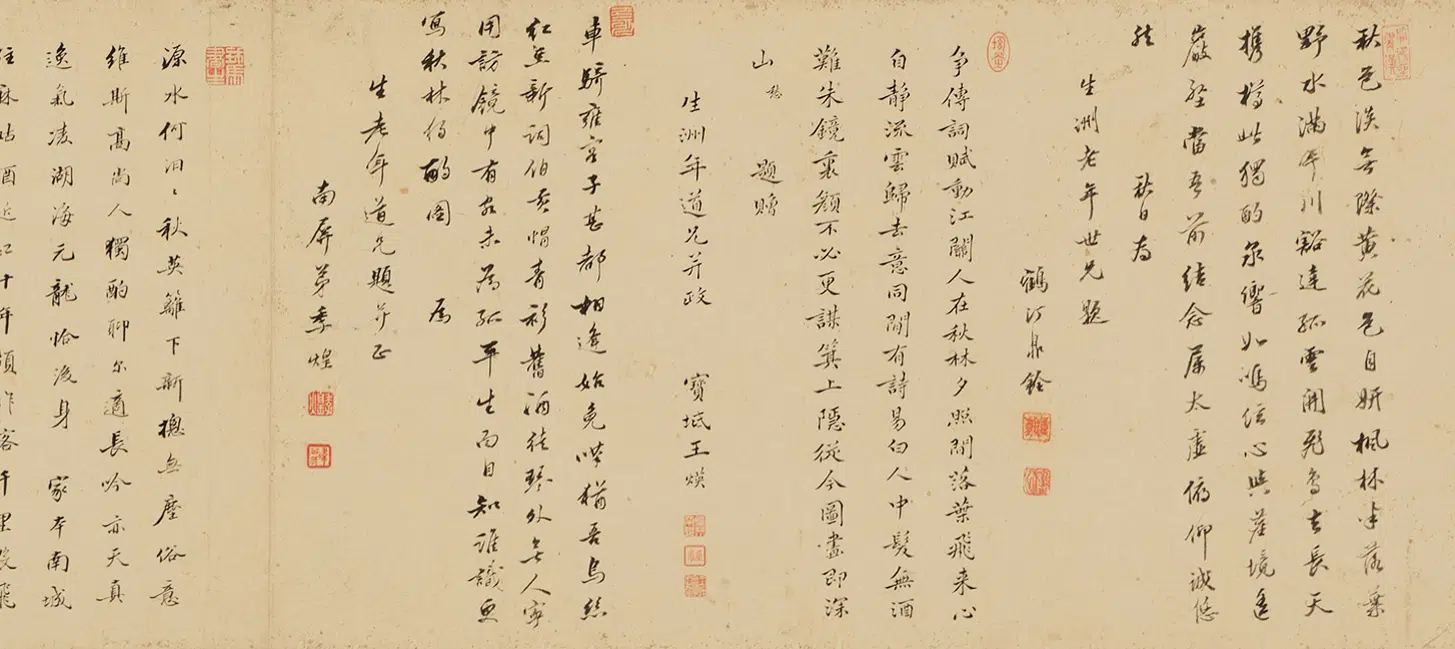 秋色淡無際黃花色自妍楓林半落葉
野水滿平川谿達孤雲開飛鳥去長天
攜樽此獨酌泉響如鳴弦心與崖境遠
嚴壑當吾前結念屬太虛俯仰誠悠
然
秋日為
生洲老年世兄題
鶴汀
爭傳詞賦動江關人在秋林夕照間落葉飛來心
自靜流雲歸去意同閒有詩易白人中髮無酒
難朱鏡裏顏不必更謀箕上隱從今圖畫即深
山
題贈
生洲年道兄并政
寶坻王煐
車騎雍容子甚都相逢始免嘆猶吾烏絲
紅豆新詞伯黃帽青衫舊酒徒琴外無人寧
用訪鏡中有我未為孤平生面目知誰識魚
寫秋林獨酌圖
為
生老年道兄題并正
南屏弟季煌
源水何汩汩秋英籬下新揔無塵俗意
維斯高尚人獨酌聊尔適長吟亦天真
逸氣凌湖海元龍恰後身
家本南城